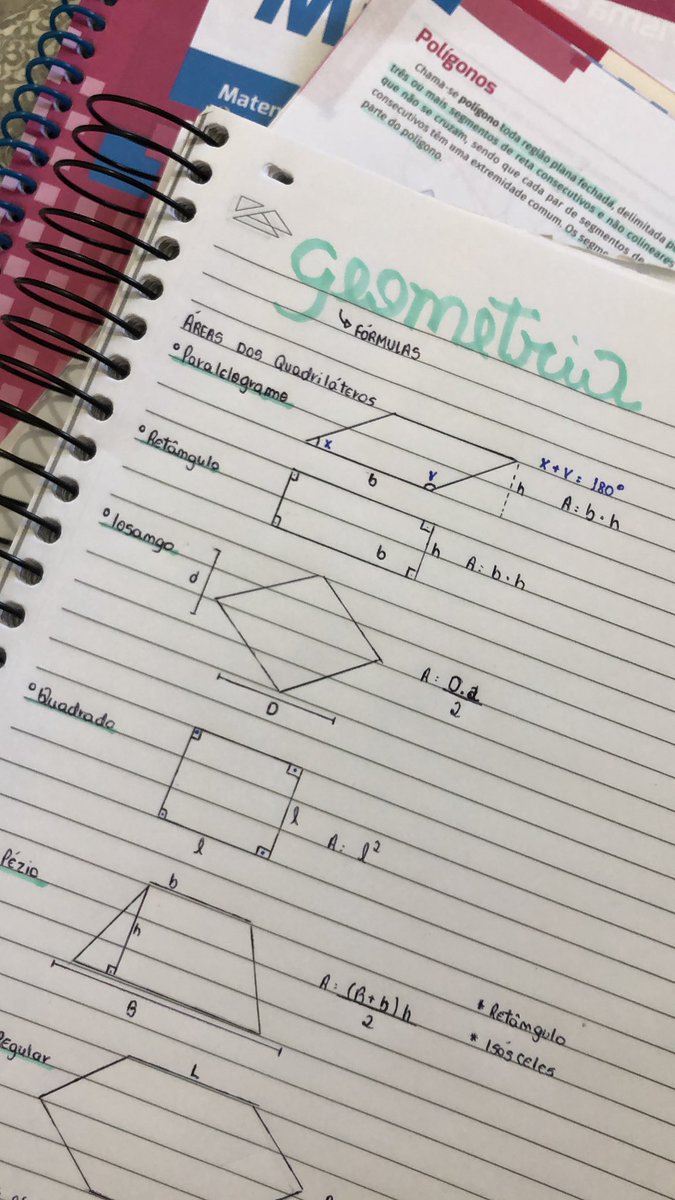 M
Matem
Polígonos
Chama-se polígono toda região plana fechada, delimitada p
três ou mais segmentos de reta consecutivos e não colineares
que não se cruzam, sendo que cada par de segmentos
consecutivos têm uma extremidade comum. Os segme
parte do polígono.
de
geometria
↳ FÓRMULAS
ÁREAS DOS Quadriláteros
° Paralelogramo
x
b
y
h
x + y = 180°
A = b · h
° Retângulo
b
h
A = b · h
° losango
d
D
A = D.d
2
° Quadrado
l
l
A = l²
pézio
b
h
B
A = (B+b)h
2
* Retângulo
* Isósceles
Regular
L